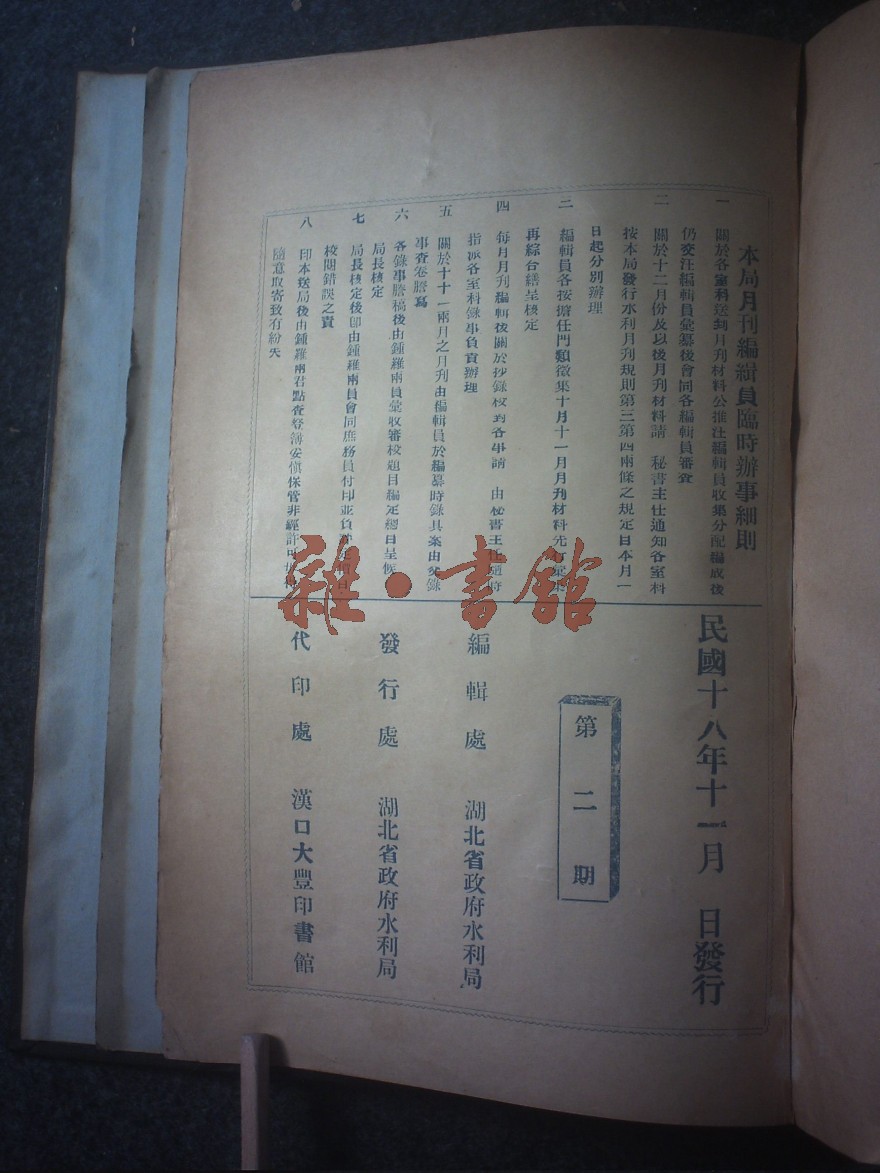 本局月刊編緝員臨時辦事細則
一 關於各室科送到月刊材料公推汪編輯員收集分配編成後
仍交汪編輯員彙纂後會同各編輯員審查
二 關於十二月份及以後月刊材料請 秘書主任通知各室科
按本局發行水利月刊規則第三第四兩條之規定自本月一
日起分別辦理
三 編輯員各按擔任門類徵集十月十一月月刊材料先行
再綜合繕呈核定
四 每月月刊編輯後關於抄錄校對各事請 由秘書主任隨時
指派各室科錄事負責辦理
五 關於十十一兩月之月刊由編輯員於編纂時錄具案由交錄
事查卷謄寫
六 各錄事謄稿後由鍾羅兩員彙收審校題目編定總目呈候
局長核定
七 局長核定後即由鍾羅兩員會同庶務員付印並負
校閱錯誤之責
八 印本送局後由鍾羅兩君點查登簿妥慎保管非經許可
隨意取寄致有紛失
民國十八年十一月 日發行
第二期
編輯處 湖北省政府水利局
發行處 湖北省政府水利局
代印處 漢口大豐印書館
雜·書館